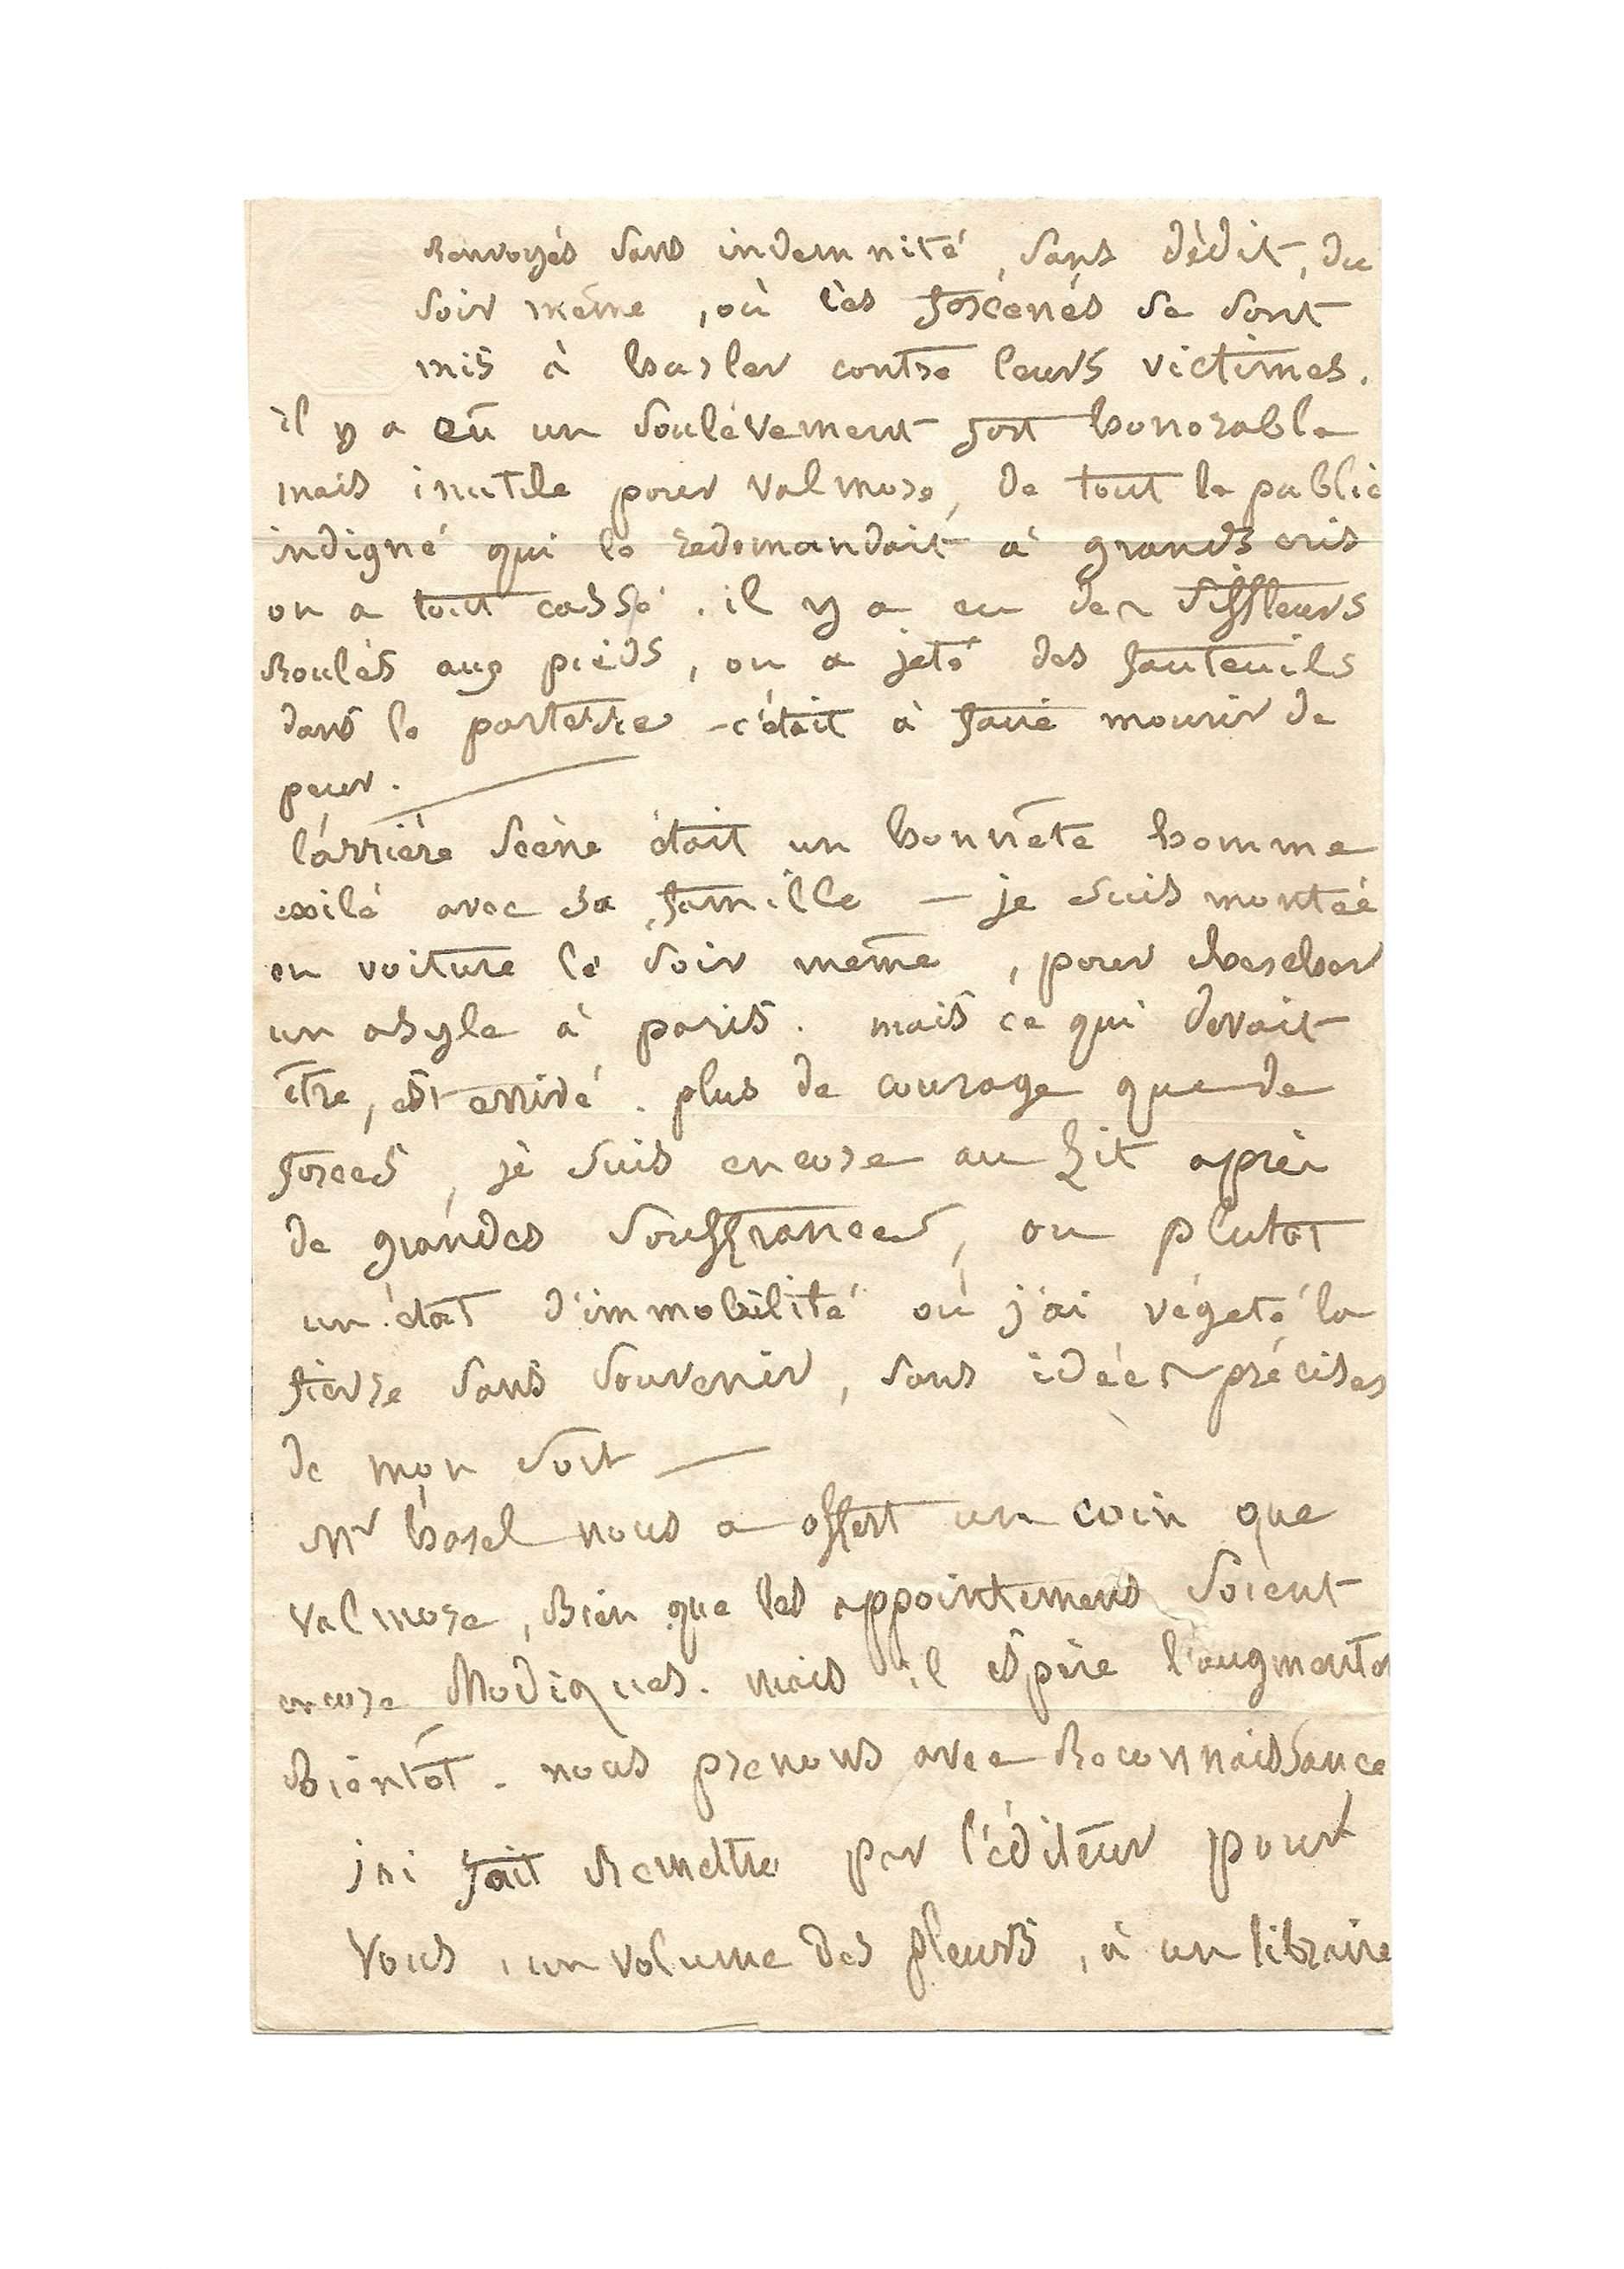 Renvoyés sans indemnité, sans dédit, du
soir même, où ces forcenés se sont
mis à hurler contre leurs victimes.
il y a eû un soulèvement fort honorable
mais inutile pour valmore, de tout le public
indigné qui le redemandait à grands cris
on a tout cassé. il y a eu des siffleurs
Roulés aux pieds, on a jeté des fauteuils
dans le parterre – c'était à faire mourir de
peur.
l'arrière scène était un honnête homme
exilé avec sa famille – je suis montée
en voiture le soir même, pour chercher
un asyle à paris. mais ce qui devait
être, est arrivé. plus de courage que de
forces, je suis encore au Lit après
de grandes souffrances, ou plutot
un état d'immobilité où j'ai végeté la
fievre sans souvenir, sans idées précises
de mon sort —
Mr harel nous a offert un coin que
valmore, Bien que les appointemens soient
encore Modiques. mais il espère l'augmenter
Bientôt. nous prenons avec Reconnaissance
j'ai fait Remettre par l'éditeur pour
Vous, un volume des pleurs, à un libraire